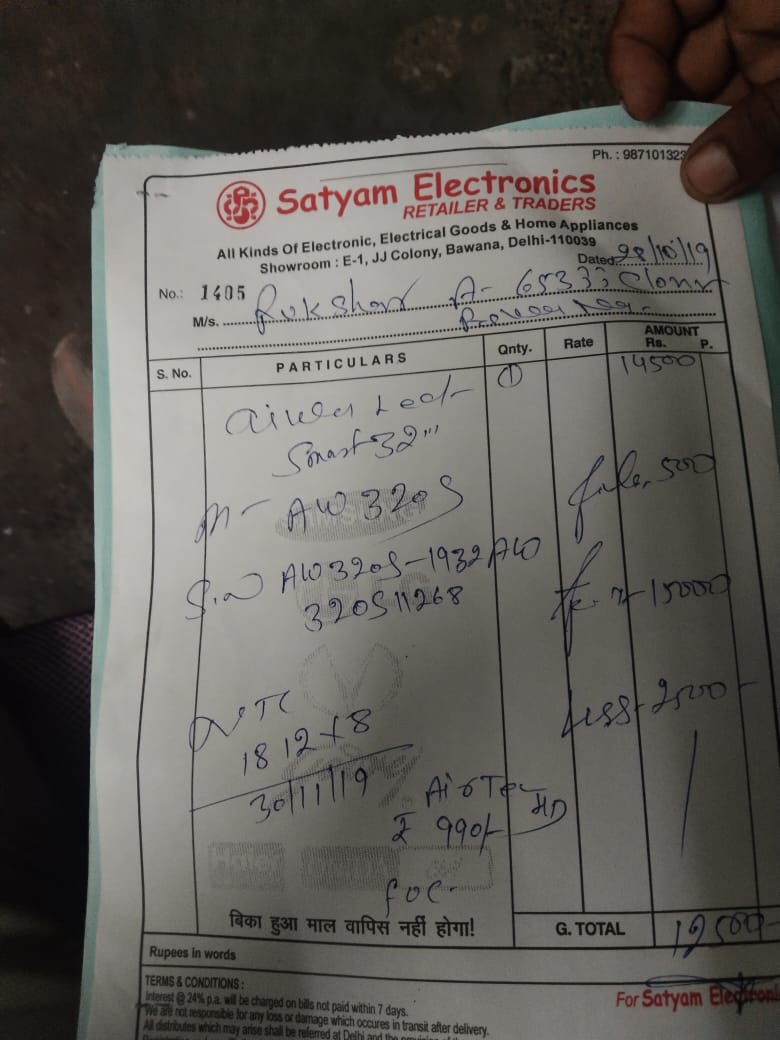 Ph. : 987101323
Satyam Electronics
RETAILER & TRADERS
All Kinds Of Electronic, Electrical Goods & Home Appliances
Showroom : E-1, JJ Colony, Bawana, Delhi-110039
Dated 28/10/19
No.: 1405
M/s. Rukshar A-
S. No. PARTICULARS Qnty. Rate AMOUNT Rs. P.
1 14500
Led
Smart 32"
M- AW320S
500
S.N AW320S-1932AW
320S11268
15000
Less- 2500-
18 12 + 8
30/11/19
AirTel HD
₹ 990/-
FOC-
बिका हुआ माल वापिस नहीं होगा!
G. TOTAL 12500-
Rupees in words
TERMS & CONDITIONS :
Interest @ 24% p.a. will be charged on bills not paid within 7 days.
We are not responsible for any loss or damage which occures in transit after delivery.
All distributes which may arise shall be referred at Delhi and the
For Satyam Electroni